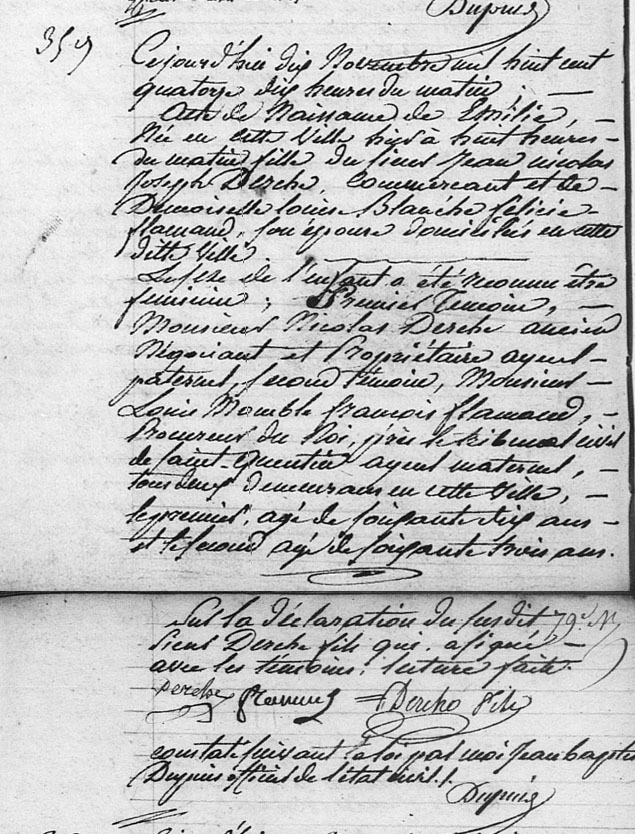 Dupuis
359
Cejourd'hui dix Novembre mil huit cent
quatorze dix heures du matin. —
Acte de Naissance de Emilie, —
Née en cette Ville hier à huit heures
du matin fille du sieur Jean nicolas
Joseph Derche, Commercant et de
Demoiselle Louise Blanche félicie
flamand, son épouse domiciliés en cette
ditte Ville
Le sexe de l'enfant a été reconnu être
feminin; Premier temoin, —
Monsieur Nicolas Derche ancien
Négociant et Propriétaire ayeul
paternel, second témoin, Monsieur
Louis françois flamand, —
Procureur du Roi, près le tribunal civil
de saint-Quentin ayeul maternel, —
tous deux demeurans en cette Ville, —
le premier, agé de soixante dix ans
et le second agé de soixante trois ans.
Sur la déclaration du susdit 79e
Sieur Derche fils qui a signé —
avec les témoins, lecture faite.
Derche flamand Derche fils
constaté suivant la loi par moi Jean baptiste
Dupuis officier de l'état civil.
Dupuis